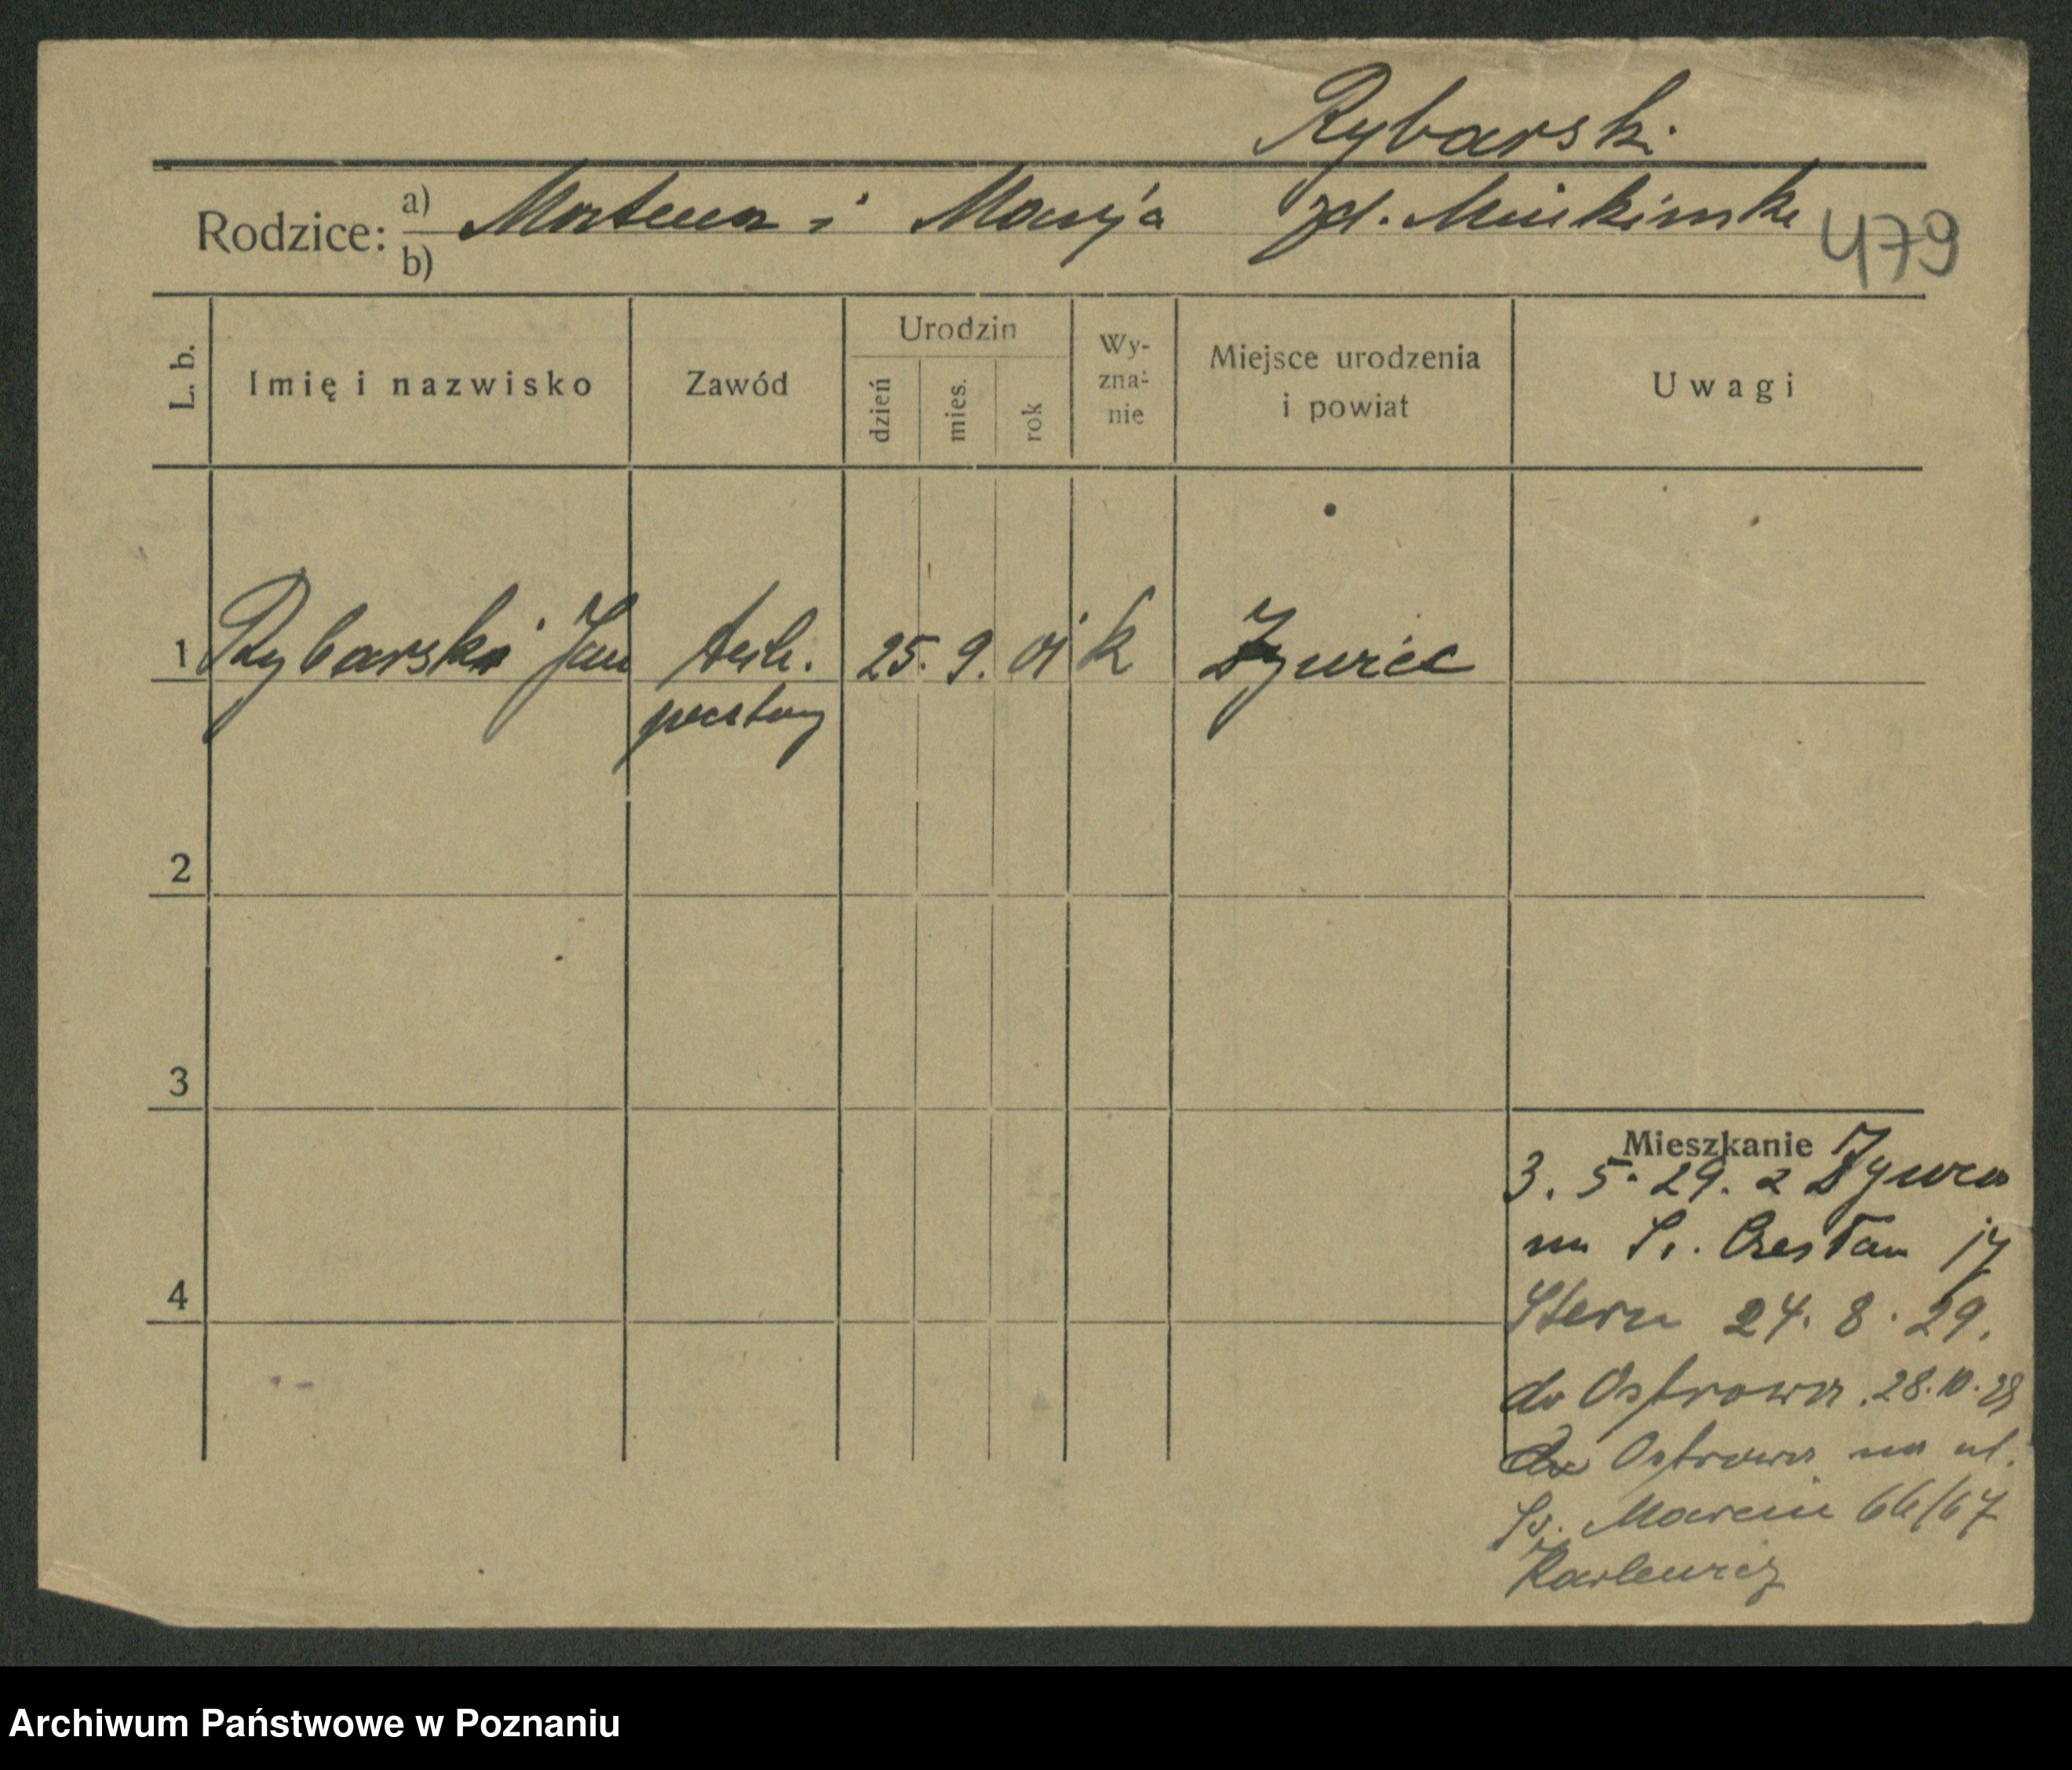 Rybarski
Rodzice: a) i Marja zd.
b)
479
L. b. Imię i nazwisko Zawód Urodzin dzień mies. rok Wy-zna-nie Miejsce urodzenia i powiat Uwagi
1 Rybarski Jan 25. 9. 01 k Żywiec
2
3
4
Mieszkanie
3. 5. 29. z Żywca
na Czesława 17
Stern 24. 8. 29.
do Ostrowa 28. 10. 29
Ostrowa na ul.
Św. Marcin 66/67
Karlewicz
Archiwum Państwowe w Poznaniu